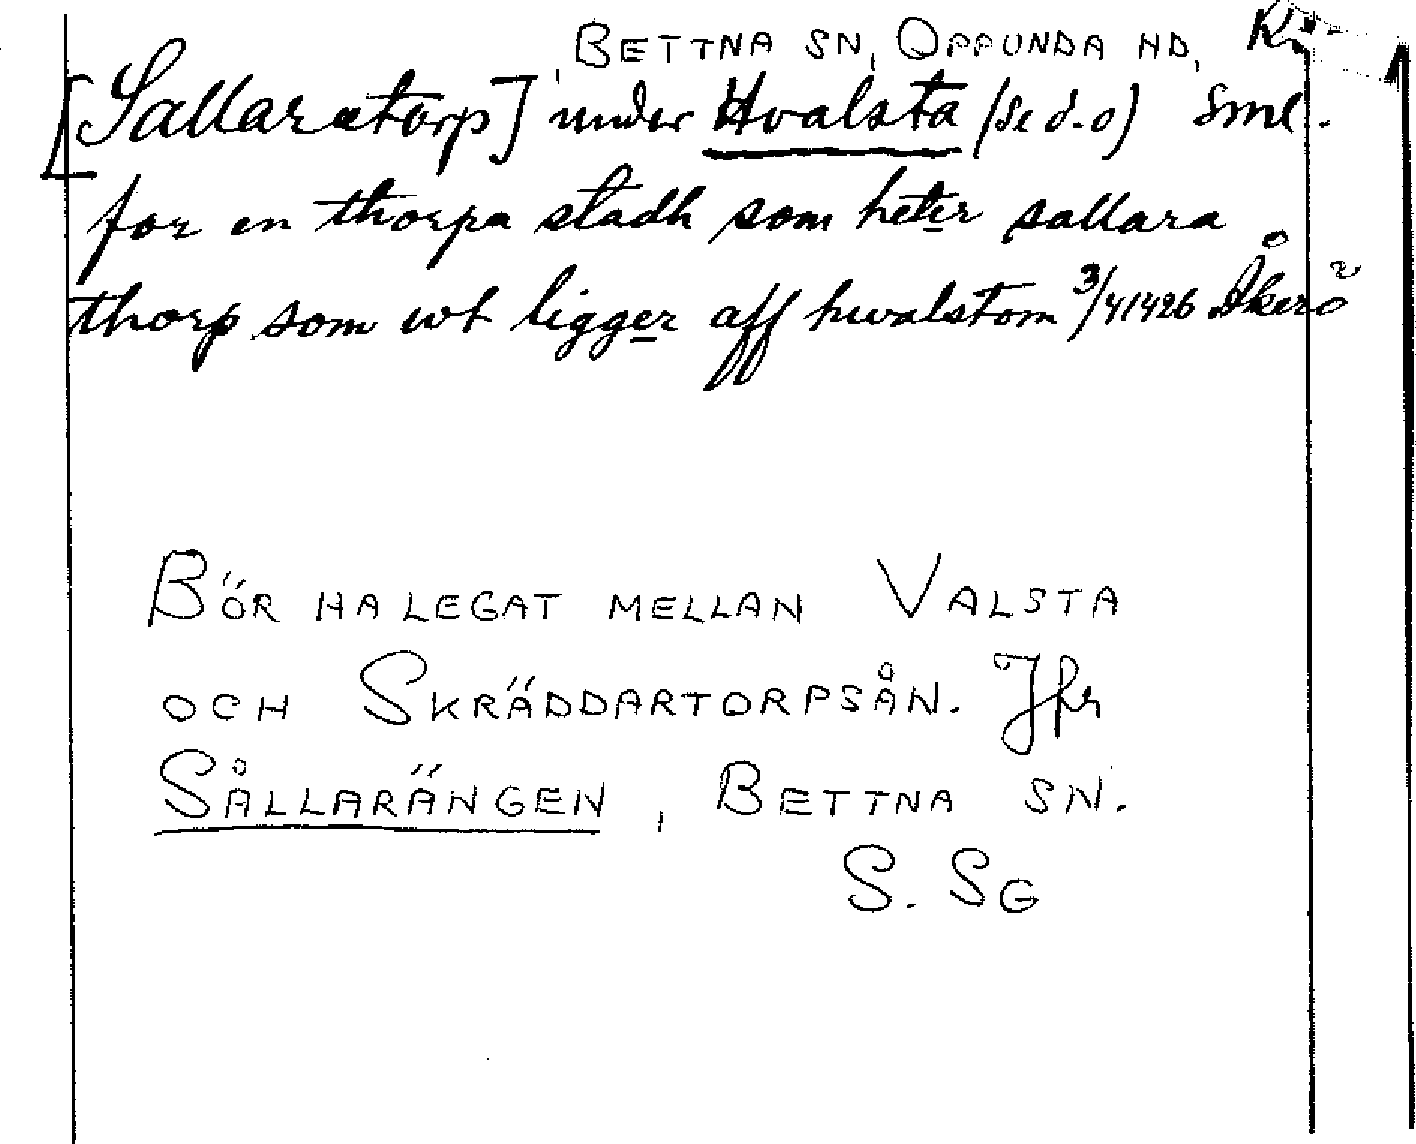 , BETTNA SN, OPPUNDA HD,
[Sallaratorp] under Hvalsta (se d.o) Sml.
for en thorpa stadh som heter sallara
thorp som wt ligger aff hwalstom 3/4 1426 Åkerö
BÖR HA LEGAT MELLAN VALSTA
OCH SKRÄDDARTORPSÅN. Jfr
SÅLLARÄNGEN, BETTNA SN.
S. SG